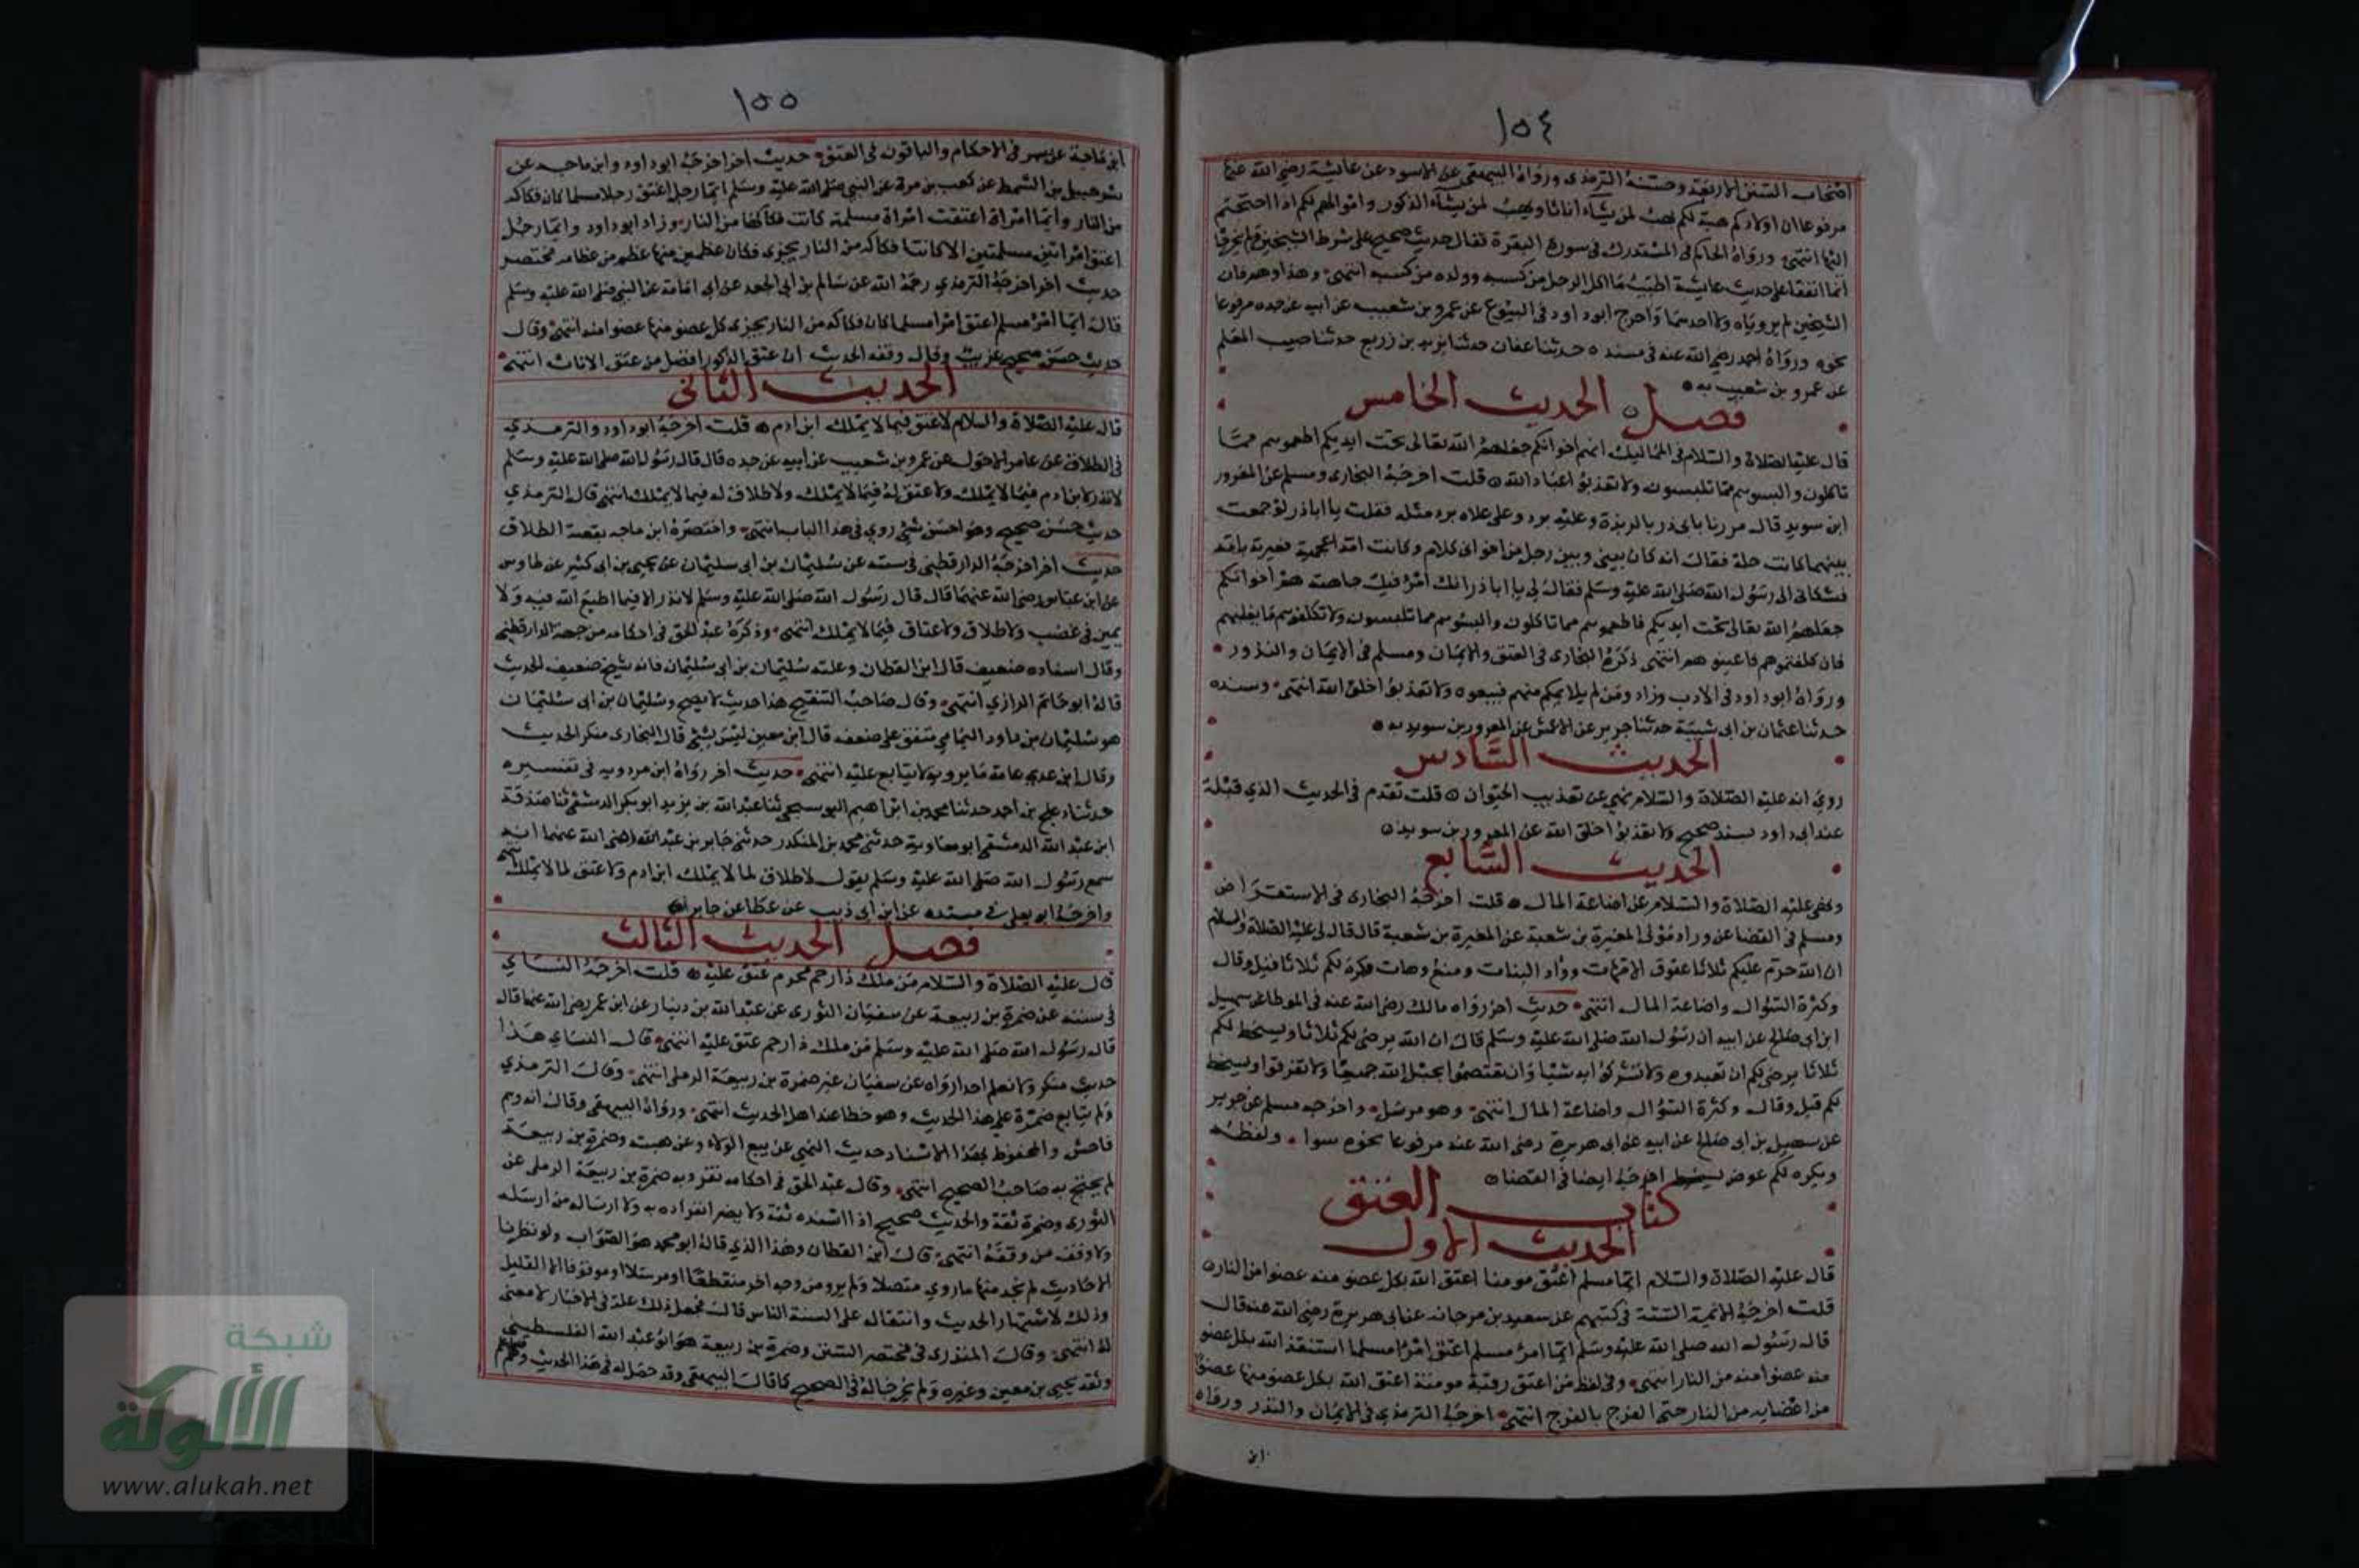 ١٥٤
اصحاب السنن الاربعة وحسنه الترمذى ورواه البيهقى عن الاسود عن عايشة رضي الله عنها
مرفوعا ان اولادكم هبة لكم يهب لمن يشآء اناثا ويهب لمن يشآء الذكور واموالهم لكم اذا احتجتم
اليها انتهى ورواه الحاكم فى المستدرك فى سورة البقرة فقال حديث صحيح على شرط الشيخين ولم يخرجا
انما اتفقا على حديث عايشة اطيب ما اكل الرجل من كسبه وولده من كسبه انتهى وهذا وهم فان
الشيخين لم يروياه ولا احدهما واخرج ابو داود فى البيوع عن عمرو بن شعيب عن ابيه عن جده مرفوعا
نحوه ورواه احمد رضي الله عنه فى مسنده حدثنا عفان حدثنا يزيد بن زريع حدثنا حبيب المعلم
عن عمرو بن شعيب به
فصل الحديث الخامس
قال عليه الصلاة والسلام فى المماليك انهم اخوانكم جعلهم الله تعالى تحت ايديكم اطعموهم مما
تاكلون والبسوهم مما تلبسون ولا تعذبوا عباد الله قلت اخرجه البخارى ومسلم عن المعرور
ابن سويد قال مررنا بابى ذر بالربذة وعليه برد وعلى غلامه برد مثله فقلت يا ابا ذر لو جمعت
بينهما كانت حلة فقال انه كان بينى وبين رجل من اخوانى كلام وكانت امه اعجمية فعيرته بامه
فشكانى الى رسول الله صلى الله عليه وسلم فقال لي يا ابا ذر انك امرؤ فيك جاهلية هم اخوانكم
جعلهم الله تعالى تحت ايديكم فاطعموهم مما تاكلون والبسوهم مما تلبسون ولا تكلفوهم ما يغلبهم
فان كلفتموهم فاعينوهم انتهى ذكره البخارى فى العتق والايمان ومسلم فى الايمان والنذور
ورواه ابو داود فى الادب وزاد ومن لم يلايمكم منهم فبيعوه ولا تعذبوا خلق الله انتهى وسنده
حدثنا عثمان بن ابى شيبة حدثنا جرير عن الاعمش عن المعرور بن سويد به
الحديث السادس
روي انه عليه الصلاة والسلام نهي عن تعذيب الحيوان قلت تقدم فى الحديث الذي قبله
عند ابى داود بسند صحيح ولا تعذبوا خلق الله عن المعرور بن سويد
الحديث السابع
ونهى عليه الصلاة والسلام عن اضاعة المال قلت اخرجه البخارى فى الاستقراض
ومسلم فى القضا عن وراد مولى المغيرة بن شعبة عن المغيرة بن شعبة قال قال لى عليه الصلاة والسلام
ان الله حرم عليكم ثلاثا عقوق الامهات وواد البنات ومنع وهات وكره لكم ثلاثا قيل وقال
وكثرة السؤال واضاعة المال انتهى حديث اخر رواه مالك رضي الله عنه فى الموطا عن سهيل
ابن ابى صالح عن ابيه ان رسول الله صلى الله عليه وسلم قال ان الله يرضى لكم ثلاثا ويسخط لكم
ثلاثا يرضى لكم ان تعبدوه ولا تشركوا به شيا وان تعتصموا بحبل الله جميعا ولا تفرقوا ويسخط
لكم قيل وقال وكثرة السؤال واضاعة المال انتهى وهو مرسل واخرجه مسلم عن جرير
عن سهيل بن ابى صالح عن ابيه عن ابى هريرة رضى الله عنه مرفوعا نحوه سوا ولفظه
ويكره لكم عوض يسخط اخرجه ايضا فى القضا
كتاب العتق
الحديث الاول
قال عليه الصلاة والسلام ايما مسلم اعتق مومنا اعتق الله بكل عضو منه عضوا من النار
قلت اخرجه الايمة الستة فى كتبهم عن سعيد بن مرجانه عن ابى هريرة رضي الله عنه قال
قال رسول الله صلى الله عليه وسلم ايما امرؤ مسلم اعتق امرا مسلما استنقذ الله بكل عضو
منه عضوا منه من النار انتهى وفى لفظ من اعتق رقبة مومنة اعتق الله بكل عضو منها عضوا
من اعضايه من النار حتى الفرج بالفرج انتهى اخرجه الترمذى فى الايمان والنذر ورواه
ابن
١٥٥
ابن ماجة فى الاحكام والباقون فى العتق حديث اخر اخرجه ابو داود وابن ماجه عن
شرحبيل بن السمط عن كعب بن مرة عن النبى صلى الله عليه وسلم ايما رجل اعتق رجلا مسلما كان فكاكه
من النار وايما امراة اعتقت امراة مسلمة كانت فكاكها من النار وزاد ابو داود وايما رجل
اعتق امراتين مسلمتين الا كانتا فكاكه من النار يجزى مكان عظمين منهما عظم من عظامه مختصر
حديث اخر اخرجه الترمذي رحمه الله عن سالم بن ابى الجعد عن ابى امامة عن النبى صلى الله عليه وسلم
قال ايما امرؤ مسلم اعتق امرا مسلما كان فكاكه من النار يجزى كل عضو منه عضوا منه انتهى وقال
حديث حسن صحيح غريب وقال وفقه الحديث ان عتق الذكور افضل من عتق الاناث انتهى
الحديث الثانى
قال عليه الصلاة والسلام لا عتق فيما لا يملك ابن ادم قلت اخرجه ابو داود والترمذي
فى الطلاق عن عامر الاحول عن عمرو بن شعيب عن ابيه عن جده قال قال رسول الله صلى الله عليه وسلم
لا نذر لابن ادم فيما لا يملك ولا عتق له فيما لا يملك ولا طلاق له فيما لا يملك انتهى قال الترمذي
حديث حسن صحيح وهو احسن شئ روي فى هذا الباب انتهى واختصره ابن ماجه بقصة الطلاق
حديث اخر اخرجه الدارقطنى فى سننه عن سليمان بن ابى سليمان عن يحيى بن ابى كثير عن طاوس
عن ابن عباس رضى الله عنهما قال قال رسول الله صلى الله عليه وسلم لا نذر الا فيما اطيع الله فيه ولا
يمين فى غضب ولا طلاق ولا عتاق فيما لا يملك انتهى وذكره عبد الحق فى احكامه من جهة الدارقطنى
وقال اسناده ضعيف قال ابن القطان وعلته سليمان بن ابى سليمان فانه شيخ ضعيف الحديث
قاله ابو حاتم الرازي انتهى وقال صاحب التنقيح هذا حديث لا يصح وسليمان بن ابى سليمان
هو سليمان بن داود اليمامي متفق على ضعفه قال ابن معين ليس بشئ قال البخارى منكر الحديث
وقال ابن عدي عامة ما يرويه لا يتابع عليه انتهى حديث اخر رواه ابن مردويه فى تفسيره
حدثنا دعلج بن احمد حدثنا محمد بن ابراهيم البوسنجى ثنا عبد الله بن يزيد ابو بكر الدمشقي ثنا صدقة
ابن عبد الله الدمشقى ابو معاوية حدثنى محمد بن المنكدر حدثنى جابر بن عبد الله رضى الله عنهما انه
سمع رسول الله صلى الله عليه وسلم يقول لا طلاق لما لا يملك ابن ادم ولا عتق لما لا يملك انتهى
واخرجه ابو يعلى فى مسنده عن ابن ابى ذيب عن عطا عن جابر
فصل الحديث الثالث
قال عليه الصلاة والسلام من ملك ذا رحم محرم عتق عليه قلت اخرجه النساي
فى سننه عن ضمرة بن ربيعة عن سفيان الثورى عن عبد الله بن دينار عن ابن عمر رضى الله عنهما قال
قال رسول الله صلى الله عليه وسلم من ملك ذا رحم عتق عليه انتهى قال النساي هذا
حديث منكر ولا نعلم احدا رواه عن سفيان غير ضمرة بن ربيعة الرملى انتهى وقال الترمذي
ولم يتابع ضمرة على هذا الحديث وهو خطا عند اهل الحديث انتهى ورواه البيهقى وقال انه وهم
فاحش والمحفوظ بهذا الاسناد حديث النهى عن بيع الولاء وعن هبته وضمرة بن ربيعة
لم يحتج به صاحبا الصحيح انتهى وقال عبد الحق فى احكامه تفرد به ضمرة بن ربيعة الرملى عن
الثورى وضمرة ثقة والحديث صحيح اذا اسنده ثقة ولا يضر انفراده به ولا ارسال من ارسله
ولا وقف من وقفه انتهى قال ابن القطان وهذا الذي قاله ابو محمد هو الصواب ولو نظرنا
الاحاديث لم نجد منها ما روي متصلا ولم يرو من وجه اخر منقطعا او مرسلا او موقوفا الا القليل
وذلك لاشتهار الحديث وانتقاله على السنة الناس قال فجعل ذلك علة فى الاخبار لا معنى
له انتهى وقال المنذرى فى مختصر السنن وضمرة بن ربيعة هو ابو عبد الله الفلسطينى
وثقه يحيى بن معين وغيره ولم يخرجا له فى الصحيح كما قال البيهقى وقد حصل له فى هذا الحديث وهم
شبكة
الألوكة
www.alukah.net